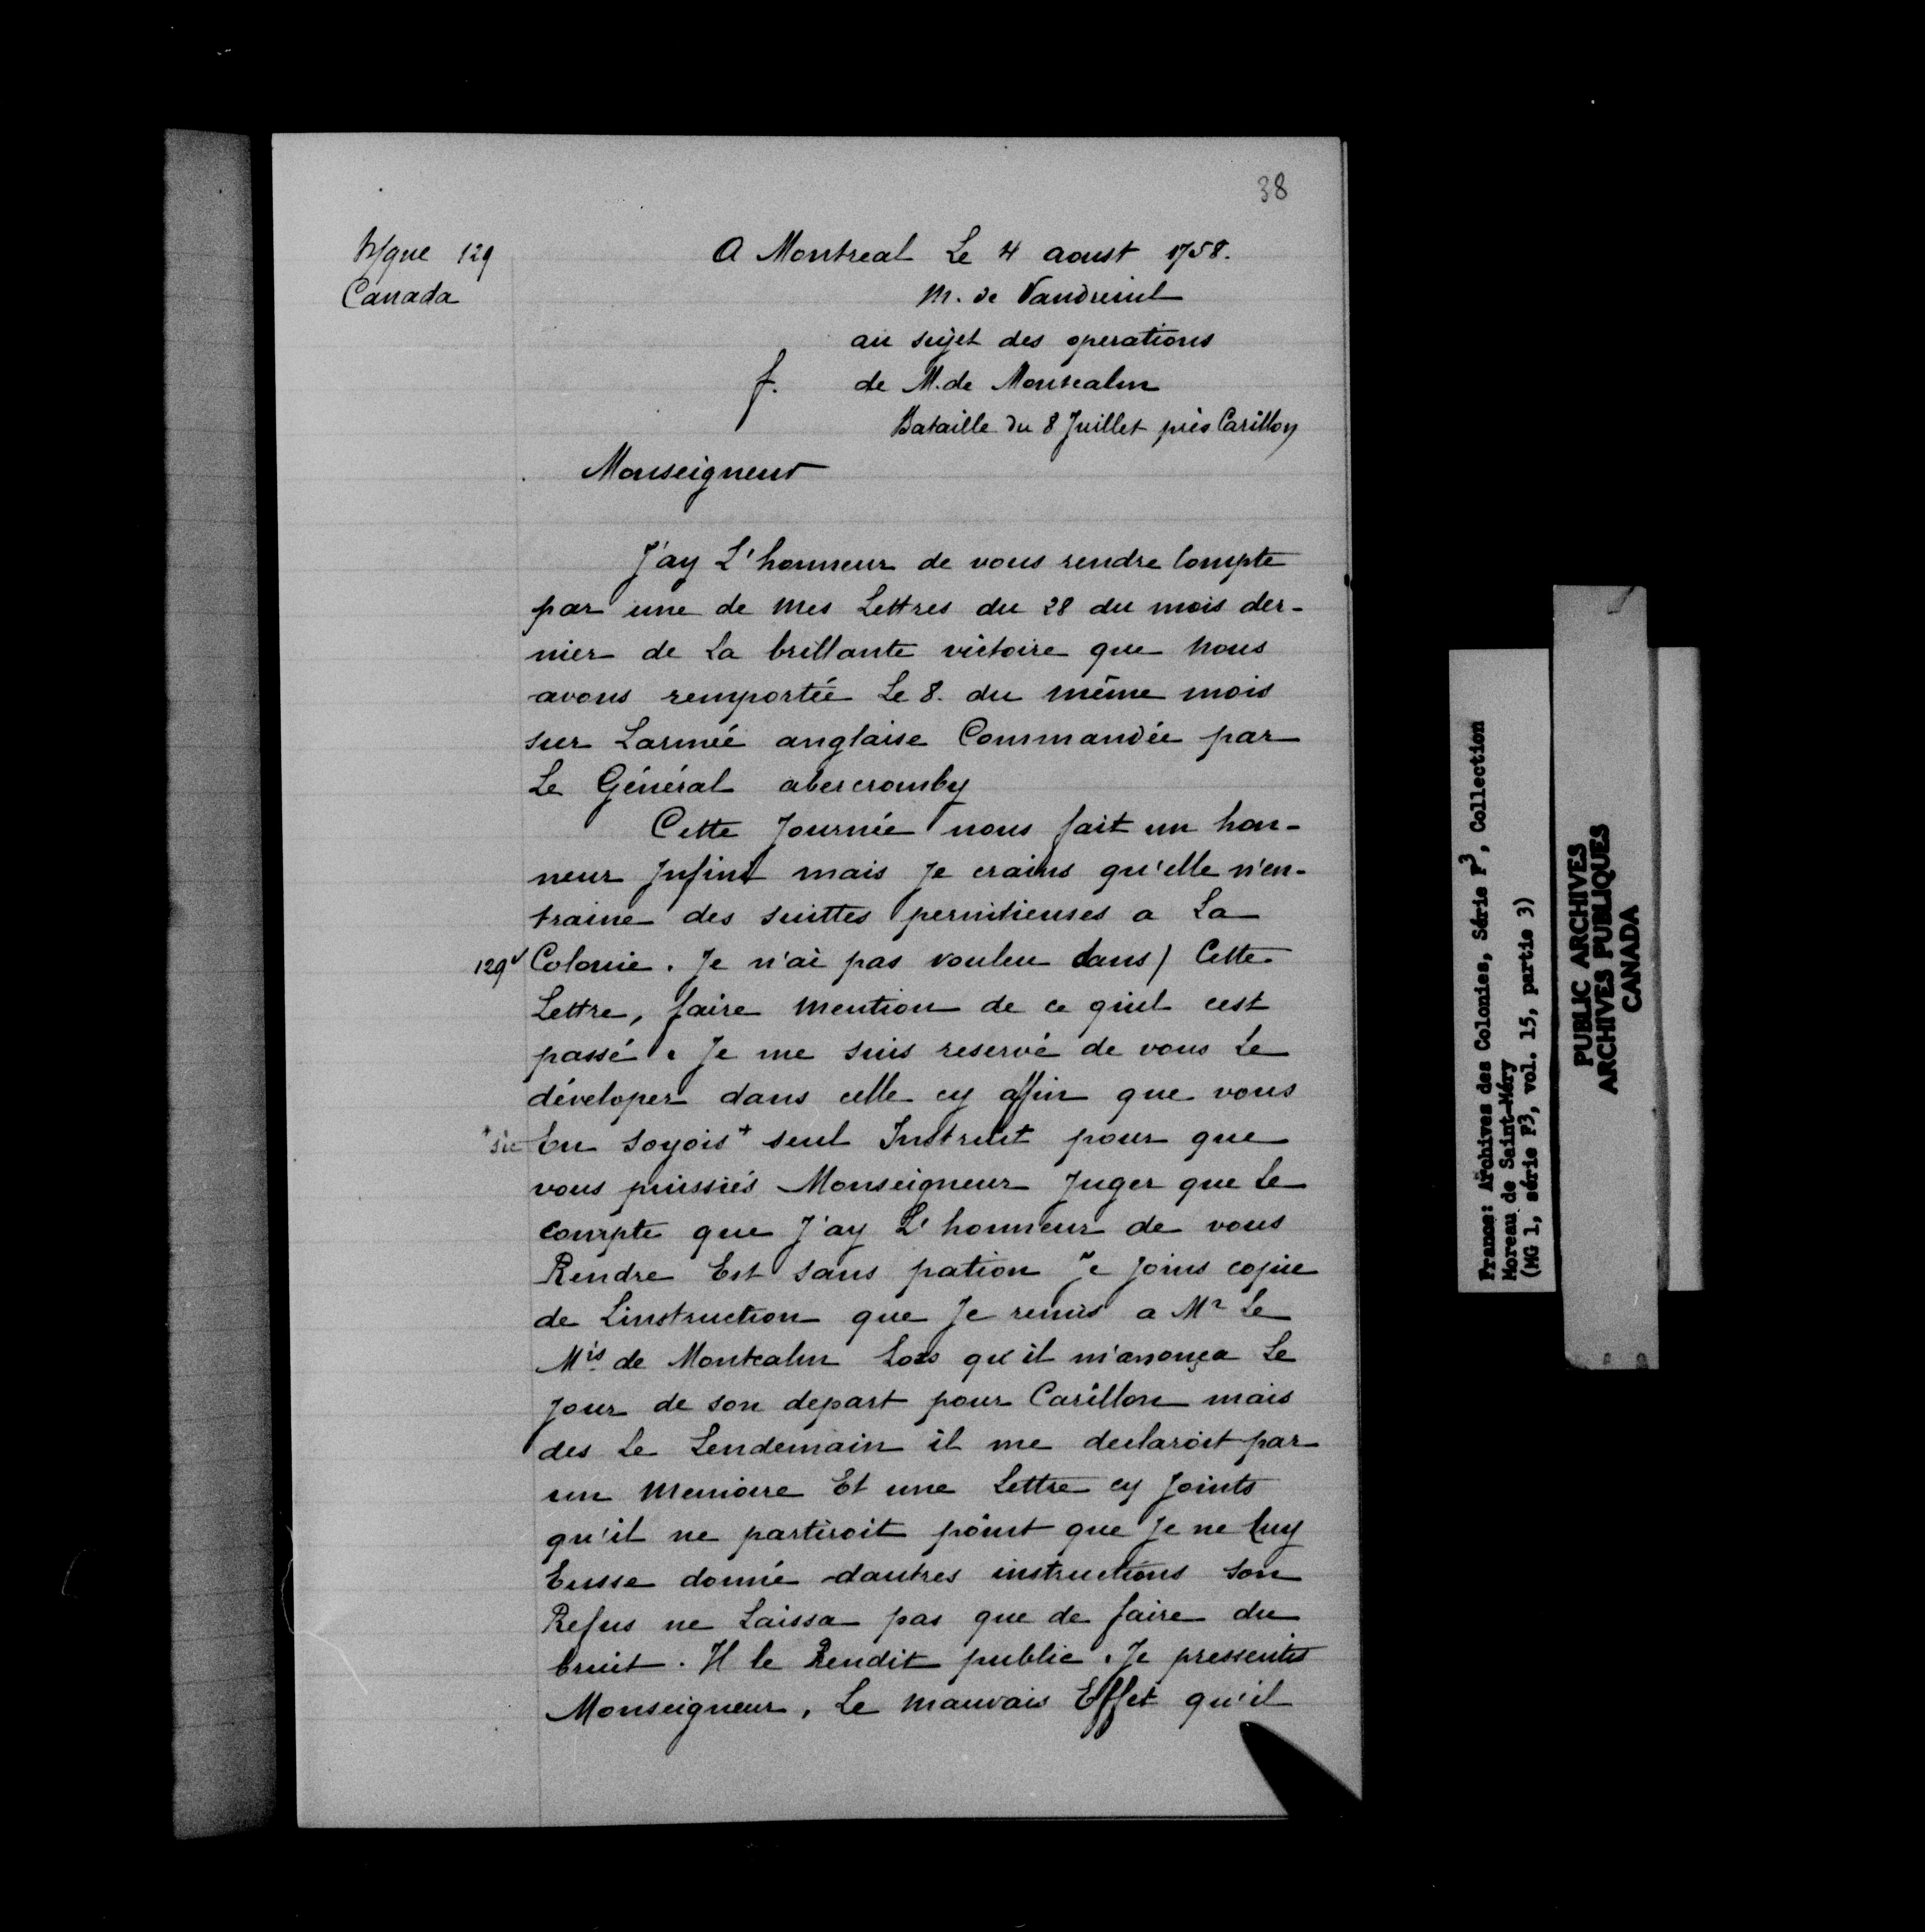 38
129
Canada
A Montreal Le 4 aoust 1758.
M. de Vaudreuil
au sujet des operations
f. de M. de Montcalm
Bataille du 8 Juillet près Carillon
Monseigneur
J'ay L'honneur de vous rendre Compte
par une de mes Lettres du 28 du mois der-
nier de La brillante victoire que nous
avons remportée Le 8. du même mois
sur Larmée anglaise Commandée par
Le Général abercromby
Cette Journée nous fait un hon-
neur Infini mais Je crains qu'elle n'en-
traine des suittes pernitieuses a La
129v Colonie. Je n'ai pas voulu dans / Cette
Lettre, faire mention de ce quil cest
passé. Je me suis reservé de vous Le
déveloper dans celle cy affin que vous
+ sic En soyois+ seul Instruit pour que
vous puissiés Monseigneur Juger que Le
compte que J'ay L'honneur de vous
Rendre Est sans pation Je joins copie
de Linstruction que Je remis a Mr Le
Mis de Montcalm Lors qu'il m'anonça Le
jour de son depart pour Carillon mais
des Le Lendemain il me declaroit par
un Memoire Et une Lettre cy Joints
qu'il ne partiroit point que Je ne Luy
Eusse donné dautres instructions Son
Refus ne Laissa pas que de faire du
bruit. Il le Rendit public. Je pressentis
Monseigneur, Le mauvais Effet qu'il
France: Archives des Colonies, Série F3, Collection
Moreau de Saint-Méry
(MG 1, série F3, vol. 15, partie 3)
PUBLIC ARCHIVES
ARCHIVES PUBLIQUES
CANADA